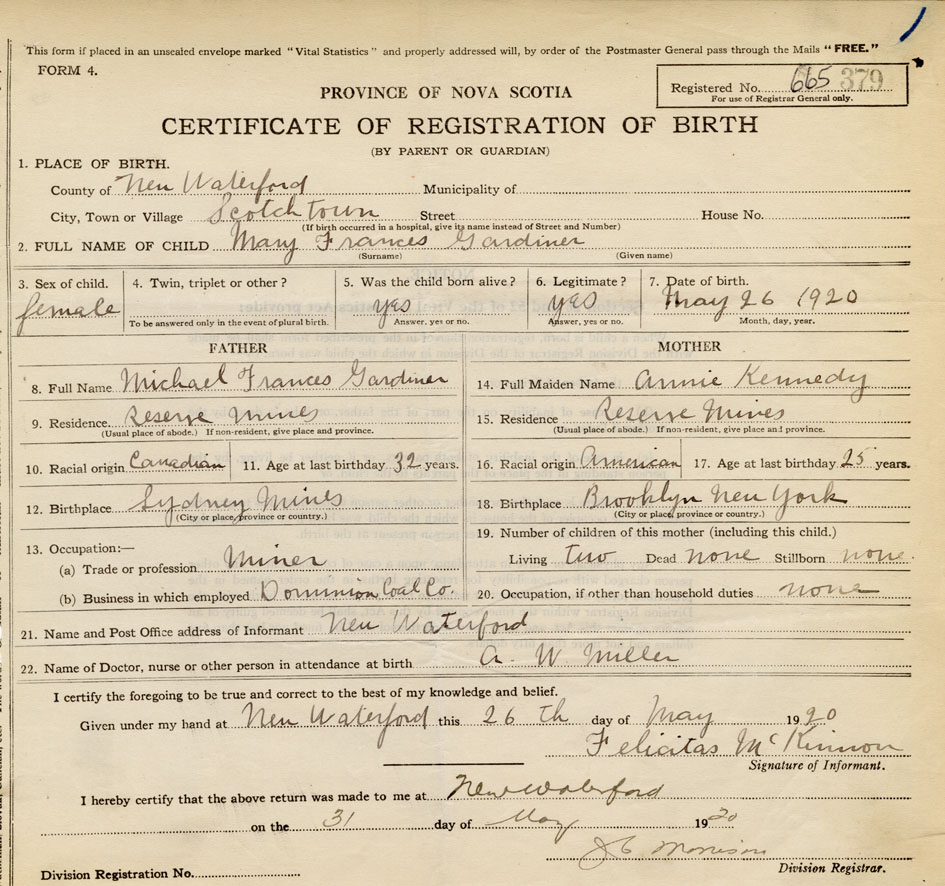 This form if placed in an unsealed envelope marked "Vital Statistics" and properly addressed will, by order of the Postmaster General pass through the Mails "FREE."
FORM 4.
PROVINCE OF NOVA SCOTIA
Registered No. 665 379
For use of Registrar General only.
CERTIFICATE OF REGISTRATION OF BIRTH
(BY PARENT OR GUARDIAN)
1. PLACE OF BIRTH.
County of New Waterford Municipality of
City, Town or Village Scotchtown Street House No.
(If birth occurred in a hospital, give its name instead of Street and Number)
2. FULL NAME OF CHILD Mary Frances Gardiner
(Surname) (Given name)
3. Sex of child. 4. Twin, triplet or other? 5. Was the child born alive? 6. Legitimate? 7. Date of birth.
female yes yes May 26 1920
To be answered only in the event of plural birth. Answer, yes or no. Answer, yes or no. Month, day, year.
FATHER MOTHER
8. Full Name Michael Frances Gardiner 14. Full Maiden Name Annie Kennedy
9. Residence. Reserve Mines 15. Residence Reserve Mines
(Usual place of abode.) If non-resident, give place and province. (Usual place of abode.) If non-resident, give place and province.
10. Racial origin Canadian 11. Age at last birthday 32 years. 16. Racial origin American 17. Age at last birthday 25 years.
12. Birthplace Sydney Mines 18. Birthplace Brooklyn New York
(City or place, province or country.) (City or place, province or country.)
13. Occupation:— 19. Number of children of this mother (including this child.)
(a) Trade or profession Miner Living two Dead none Stillborn none.
(b) Business in which employed Dominion Coal Co. 20. Occupation, if other than household duties none
21. Name and Post Office address of Informant New Waterford
22. Name of Doctor, nurse or other person in attendance at birth A. W. Miller
I certify the foregoing to be true and correct to the best of my knowledge and belief.
Given under my hand at New Waterford this 26 th day of May 1920
Felicitas McKinnon
Signature of Informant.
I hereby certify that the above return was made to me at New Waterford
on the 31 day of May 1920
Morrison
Division Registrar.
Division Registration No.